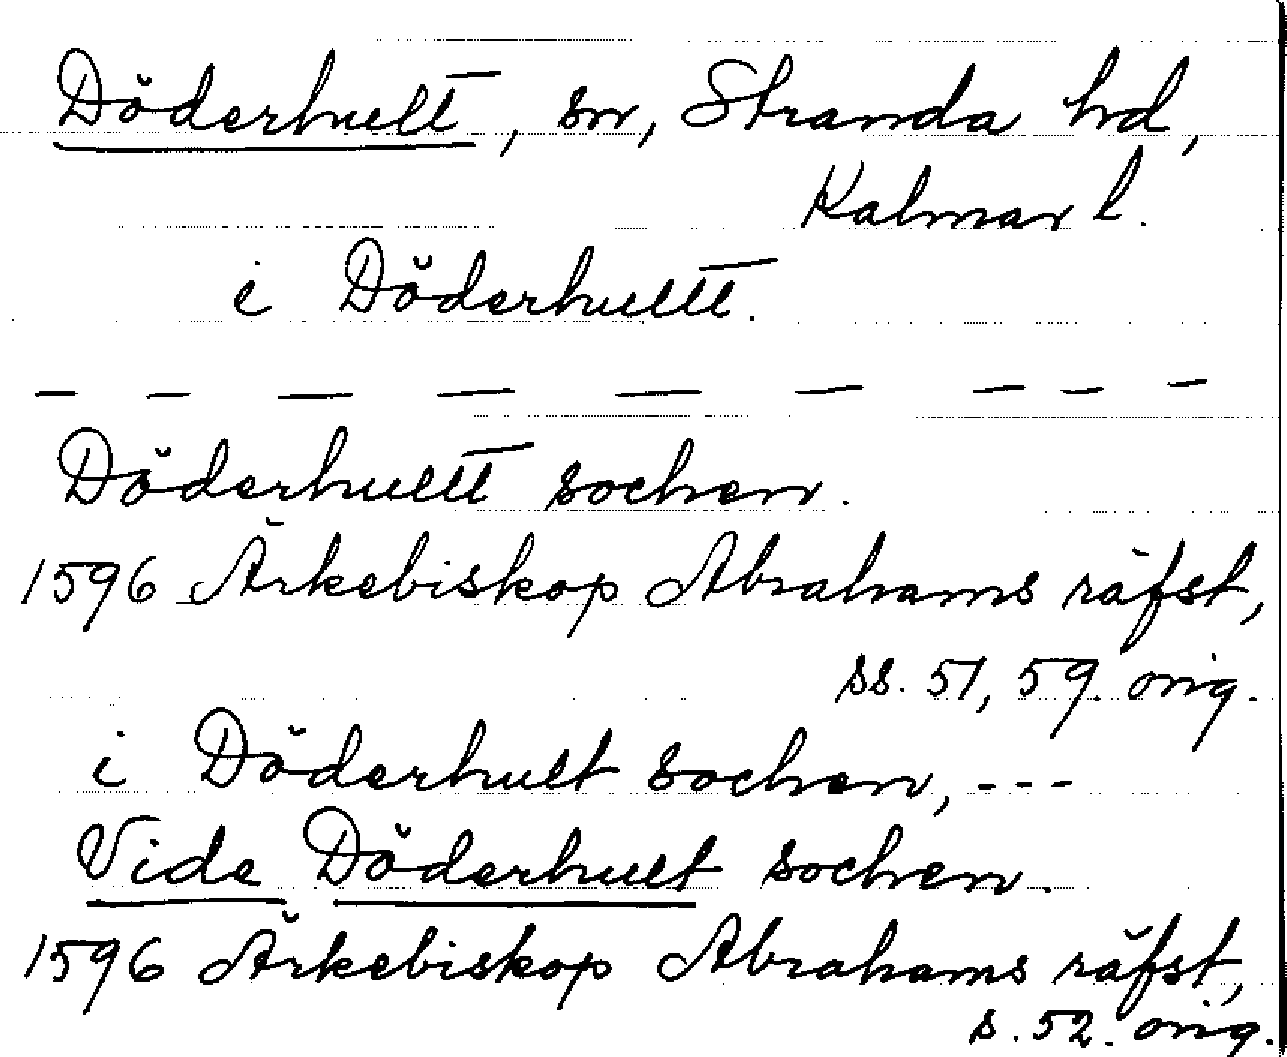 Döderhult, sn, Stranda hd,
Kalmar l.
i Döderhultt.
— — — — — — — — —
Döderhultt sochen.
1596 Ärkebiskop Abrahams räfst,
ss. 51, 59. orig.
i Döderhult sochen, ---
Vide Döderhult sochen.
1596 Ärkebiskop Abrahams räfst,
s. 52. orig.